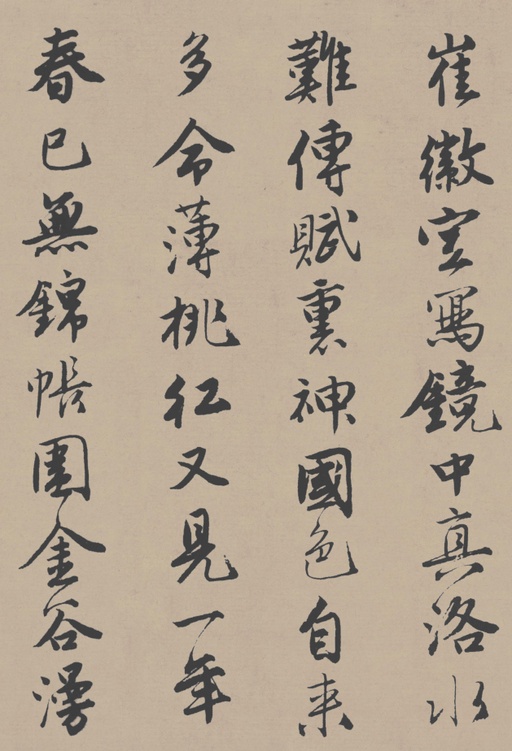 崔徽空寫鏡中真洛水
難傳賦裏神國色自来
多令薄桃红又見一年
春已無錦帳圍金谷漫